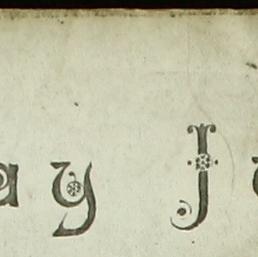 ay J